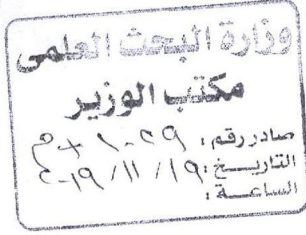 وزارة البحث العلمى
مكتب الوزير
صادر رقم :
التاريخ : ١٩ / ١١ / ٢٠١٩
الساعة :